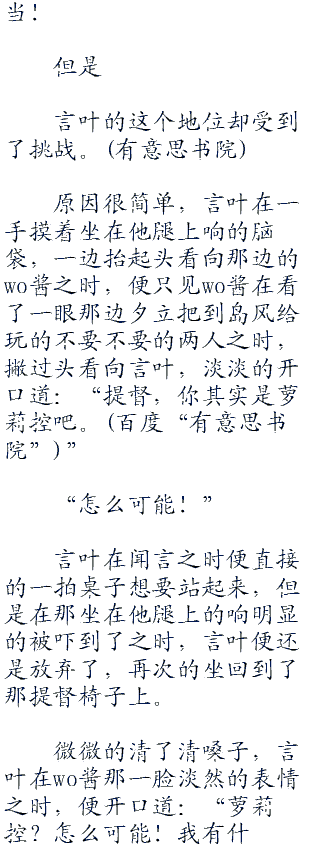 当！
但是
言叶的这个地位却受到
了挑战。(有意思书院)
原因很简单，言叶在一
手摸着坐在他腿上响的脑
袋，一边抬起头看向那边的
wo酱之时，便只见wo酱在看
了一眼那边夕立把到岛风给
玩的不要不要的两人之时，
撇过头看向言叶，淡淡的开
口道：“提督，你其实是萝
莉控吧。(百度“有意思书
院”)”
“怎么可能！”
言叶在闻言之时便直接
的一拍桌子想要站起来，但
是在那坐在他腿上的响明显
的被吓到了之时，言叶便还
是放弃了，再次的坐回到了
那提督椅子上。
微微的清了清嗓子，言
叶在wo酱那一脸淡然的表情
之时，便开口道：“萝莉
控？怎么可能！我有什